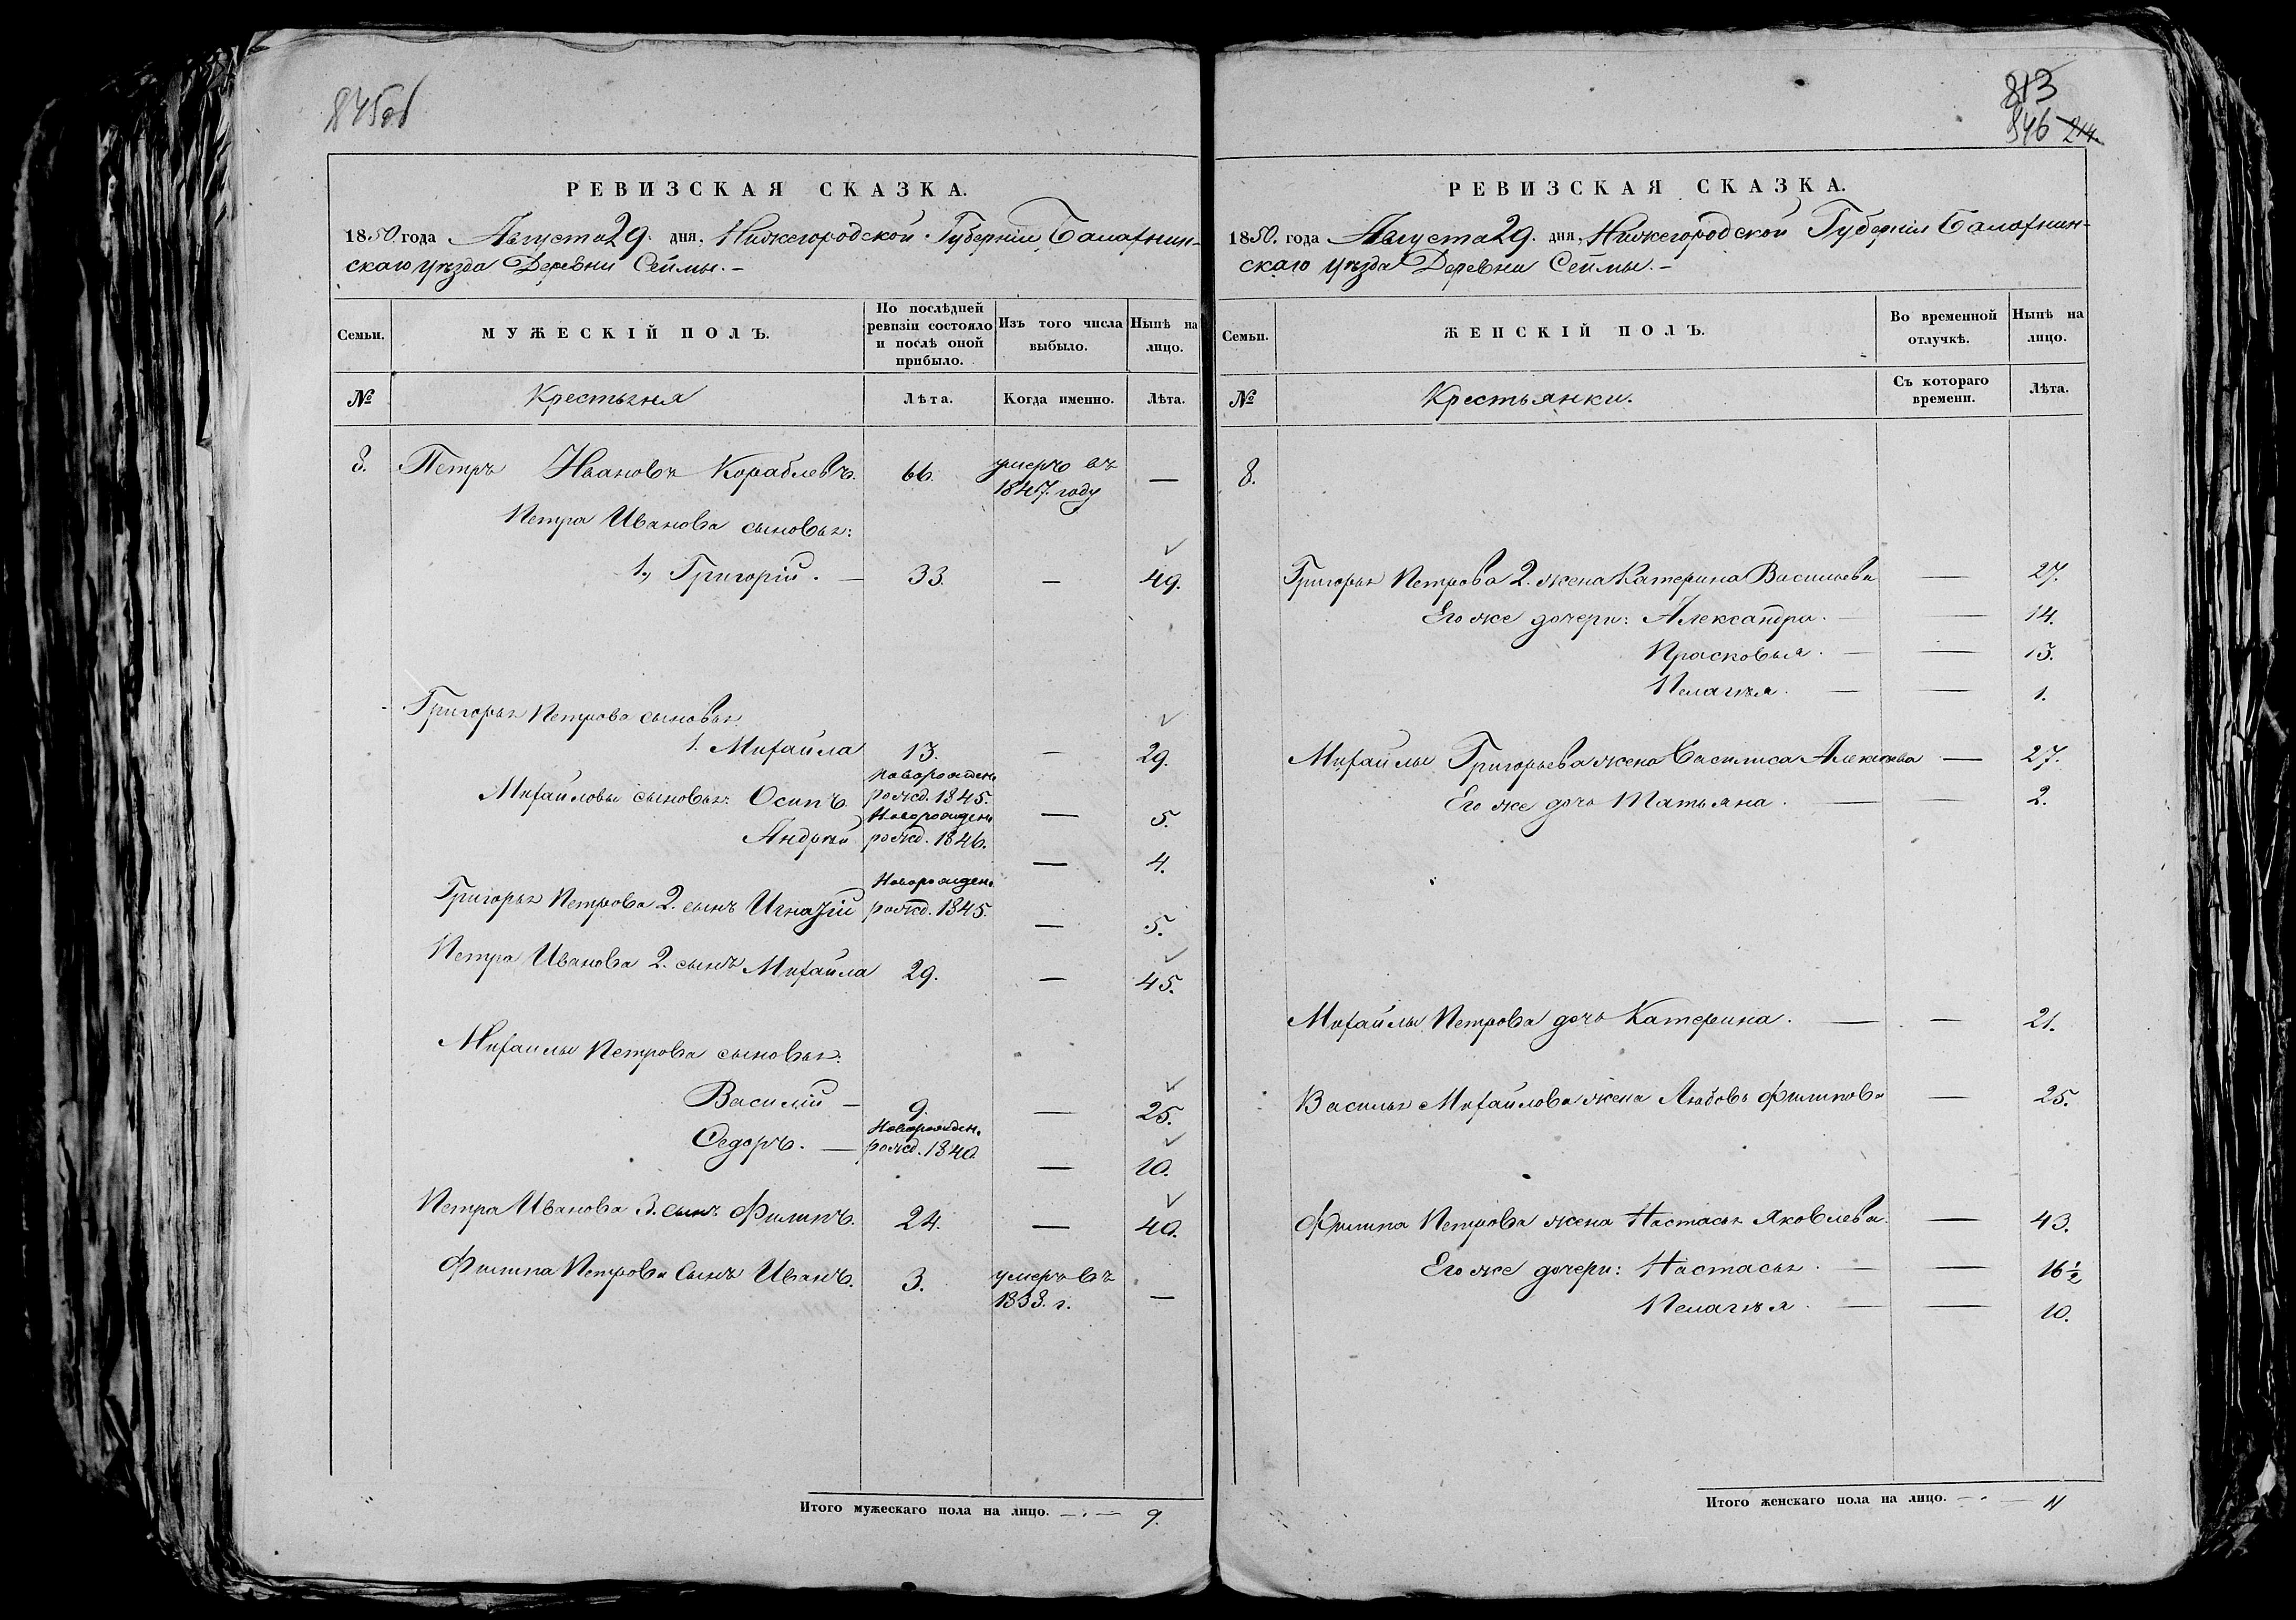 845об
РЕВИЗСКАЯ СКАЗКА.
1850 года Августа 29. дня. Нижегородской Губерніи Балахнин-
скаго уѣзда Деревни Сеймы. –
Семьи. МУЖЕСКІЙ ПОЛЪ. По послѣдней ревизіи состояло и послѣ оной прибыло. Изъ того числа выбыло. Нынѣ на лицо.
№ Крестьяня Лѣта. Когда именно. Лѣта.
8. Петръ Ивановъ Кораблевъ. 66. умеръ въ 1847. году —
Петра Иванова сыновья:
1., Григорій. — 33. — 49.
Григорья Петрова сыновья
1. Михайла 13. — 29.
Михайловы сыновья: Осипъ новорожден рожд. 1845. — 5.
Андрѣй Новорожден рожд. 1846. — 4.
Григорья Петрова 2. сынъ Игнатій Новорожден. рожд. 1845. — 5.
Петра Иванова 2. сынъ Михайла 29. — 45.
Михайлы Петрова сыновья:
Василій — 9. — 25.
Ѳедоръ. — Новорожден. рожд. 1840. — 10.
Петра Иванова 3. сынъ Филипъ. 24. — 40.
Филипа Петрова Сынъ Иванъ. 3. умеръ въ 1838. г. —
Итого мужескаго пола на лицо. — . — 9.
813
846 214.
РЕВИЗСКАЯ СКАЗКА.
1850. года Августа 29. дня. Нижегородской Губерніи Балахнин-
скаго уѣзда Деревни Сеймы. –
Семьи. ЖЕНСКІЙ ПОЛЪ. Во временной отлучкѣ. Нынѣ на лицо.
№ Крестьянки. Съ котораго времени. Лѣта.
8.
Григорья Петрова 2. жена Катерина Васильева — 27.
Его же дочери: Александра. — — 14.
Прасковья. — — 13.
Пелагѣя. — — 1.
Михайлы Григорьева жена Василиса Алексѣева — 27.
Его же дочь Татьяна. — — 2.
Михайлы Петрова дочь Катерина. — — 21.
Василья Михайлова жена Любовь Филипова — 25.
Филипа Петрова жена Настасья Яковлева. — 43.
Его же дочери: Настасья. — — 16 1/2
Пелагѣя. — — 10.
Итого женскаго пола на лицо. — . — 11